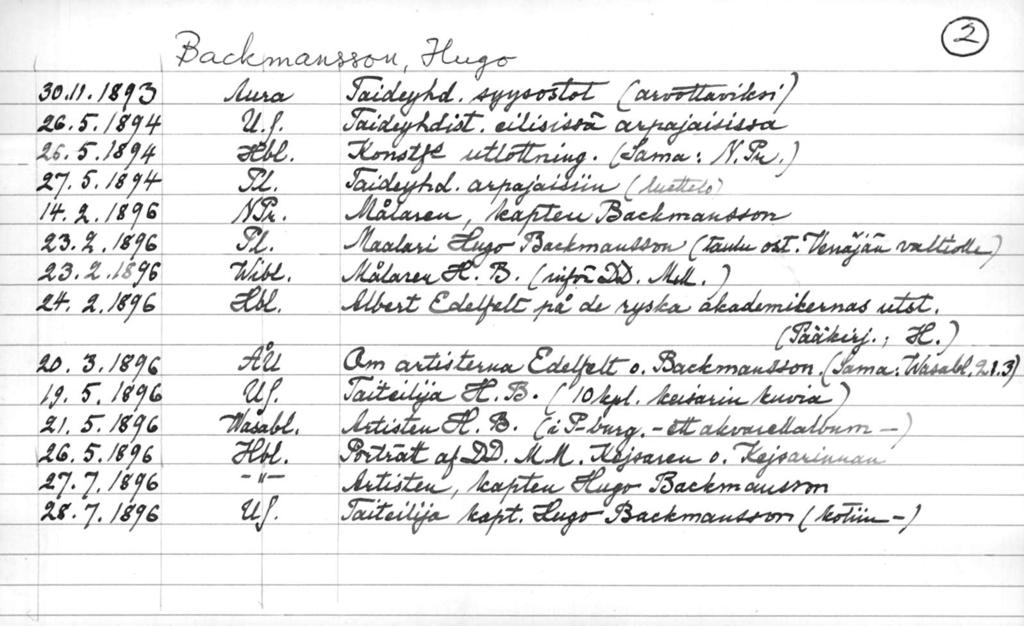 2
Backmansson, Hugo
30.11.1893 Aura Taideyhd. syysostot (arvottaviksi)
26.5.1894 U.S. Taideyhdist. eilisissä arpajaisissa
26.5.1894 Hbl. Konstf:s utlottning. (Sama: N.Pr.)
27.5.1894 Pl. Taideyhd. arpajaisiin (luettelo)
14.2.1896 NPr. Målaren, kapten Backmansson
23.2.1896 Pl. Maalari Hugo Backmansson (taulu ost. Venäjän valtiolle)
23.2.1896 Wibl. Målaren H. B. (inför DD. MM.)
24.2.1896 Hbl. Albert Edelfelt på de ryska akademikernas utst.
(Pääkirj.; H.)
20.3.1896 ÅU Om artisterna Edelfelt o. Backmansson (Sama: Wasabl. 21.3)
19.5.1896 US. Taiteilija H. B. (10 kpl. keisarin kuvia)
21.5.1896 Wasabl. Artisten H. B. (i P-burg. - ett akvarellalbum -)
26.5.1896 Hbl. Porträtt af DD. MM. Kejsaren o. Kejsarinnan
27.7.1896 -"- Artisten, kapten Hugo Backmansson
28.7.1896 US. Taiteilija kapt. Hugo Backmansson (kotiin -)